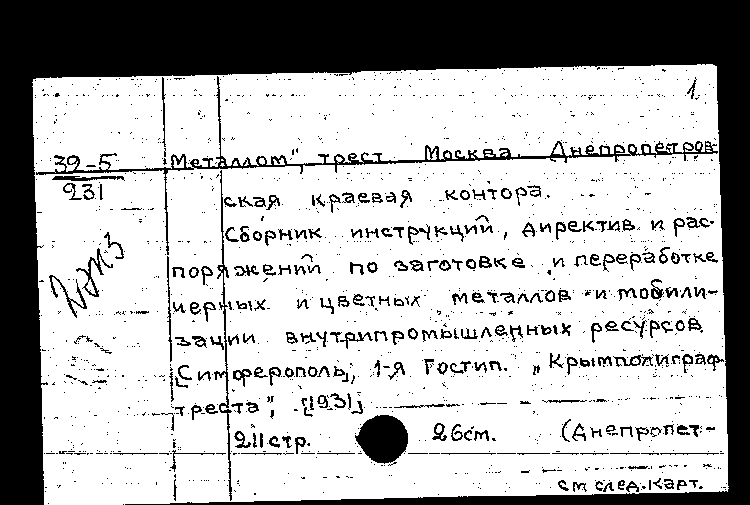 1.
39-5
231
Металлом", трест. Москва. Днепропетров-
ская краевая контора.
Сборник инструкций, директив и рас-
поряжений по заготовке и переработке
черных и цветных металлов и мобили-
зации внутрипромышленных ресурсов
[Симферополь], 1-я Гостип. „Крымполиграф-
треста", [1931]
211 стр. 26 см. (Днепропет-
см след. карт.